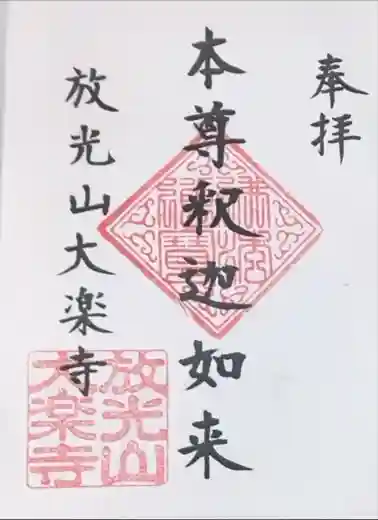 奉拝
本尊釈迦如来
放光山大楽寺
放光山
大楽寺